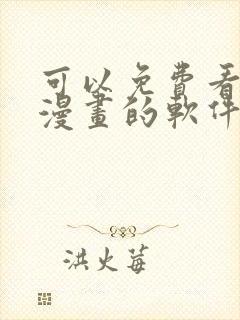 可以免費看
漫畫的軟件
洪火莓